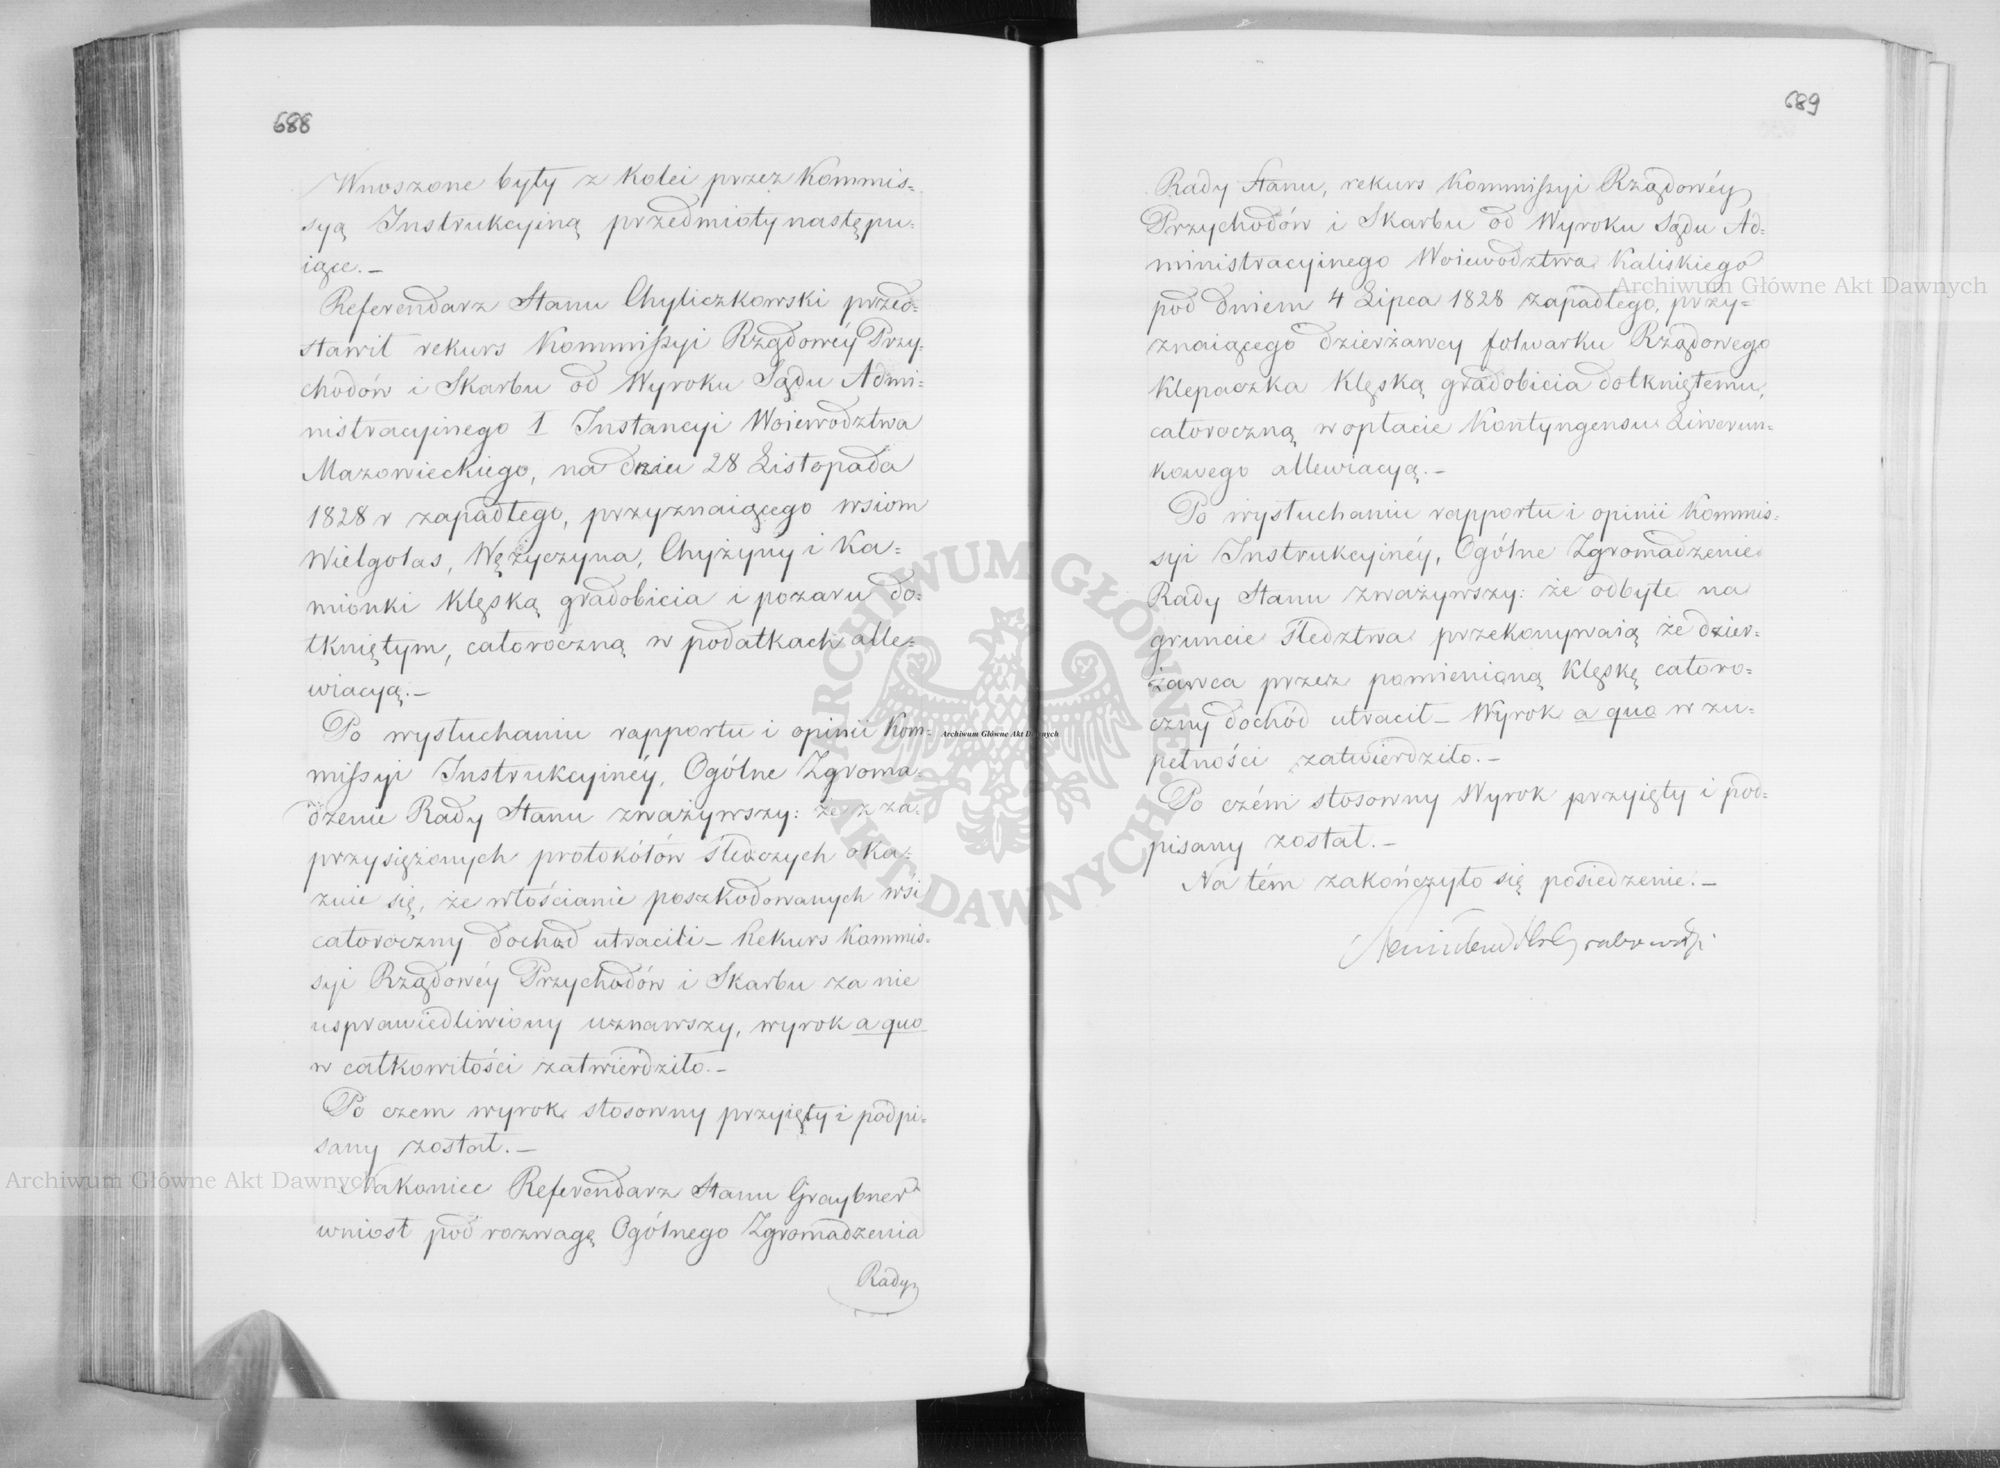 688
Wnoszone były z kolei przez Kommis=
syą Instrukcyiną przedmioty następu=
iące.–
Referendarz Stanu Chyliczkowski przed=
stawił rekurs Kommissyi Rządowéy Przy=
chodów i Skarbu od Wyroku Sądu Admi=
nistracyinego I Instancyi Woiewodztwa
Mazowieckiego, na dniu 28 Listopada
1828 r zapadłego, przyznaiącego wsiom
Wielgolas, Wężyczyna, Chyżyny i Ka=
mionki klęską gradobicia i pożaru do=
tkniętym, całoroczną w podatkach alle=
wiacyą.–
Po wysłuchaniu rapportu i opinii Kom=
missyi Instrukcyinéy, Ogólne Zgroma=
dzenie Rady Stanu zważywszy: że z za=
przysiężonych protokółów śledczych oka=
zuie się, że włościanie poszkodowanych wsi
całoroczny dochód utracili – Rekurs Kommis=
syi Rządowéy Przychodów i Skarbu za nie
usprawiedliwiony uznawszy, wyrok a quo
w całkowitości zatwierdziło.–
Po czem wyrok stosowny przyięty i podpi=
sany został.–
Nakoniec Referendarz Stanu Graybner
wniosł pod rozwagę Ogólnego Zgromadzenia
Rady
689
Rady Stanu, rekurs Kommissyi Rządowéy
Przychodów i Skarbu od Wyroku Sądu Ad=
ministracyinego Woiewodztwa Kaliskiego
pod dniem 4 Lipca 1828 zapadłego, przy=
znaiącego dzierżawcy folwarku Rządowego
Klepaczka klęską gradobicia dotkniętemu,
całoroczną w opłacie Kontyngensu Liwerun=
kowego allewiacyą.–
Po wysłuchaniu rapportu i opinii Kommis=
syi Instrukcyinéy, Ogólne Zgromadzenie
Rady Stanu zważywszy: że odbyte na
gruncie śledztwa przekonywaią że dzier=
żawca przez pomienioną klęskę całoro=
czny dochód utracił – Wyrok a quo w zu=
pełności zatwierdziło.–
Po czém stosowny Wyrok przyięty i pod=
pisany został.–
Na tém zakończyło się posiedzenie.–
Grabowski
Archiwum Główne Akt Dawnych
Archiwum Główne Akt Dawnych
Archiwum Główne Akt Dawnych
ARCHIWUM GŁÓWNE
AKT DAWNYCH